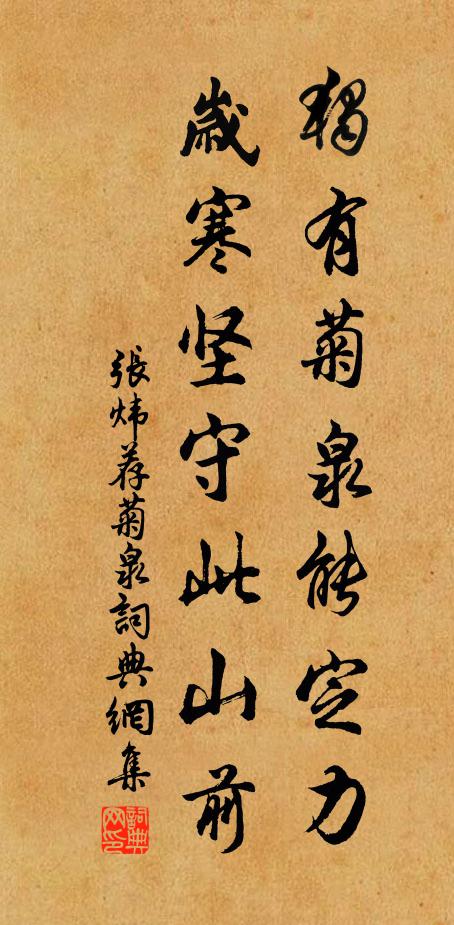 獨有菊泉能定力
歲寒坚守此山前
張炜荐菊泉詞典網集
詞典网印